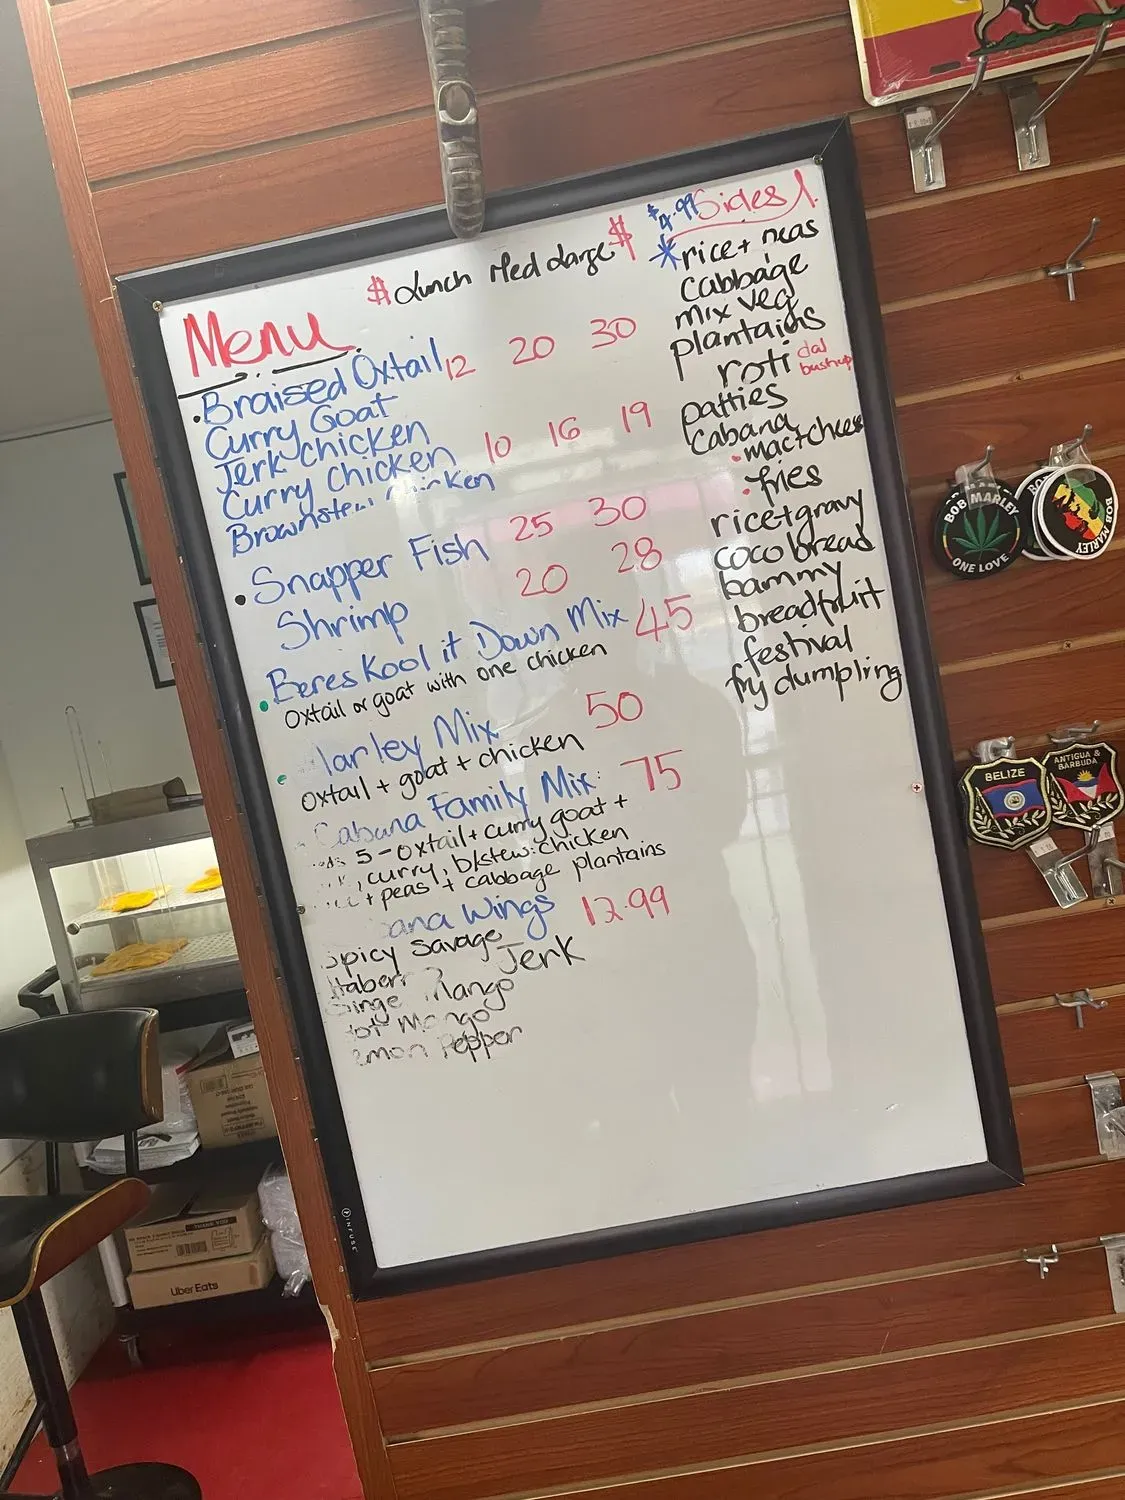 $ Lunch Med Large $
Menu
Braised Oxtail 12 20 30
Curry Goat
Jerk chicken
Curry Chicken 10 16 19
Brownstew
Snapper Fish 25 30
Shrimp 20 28
Beres Kool it Down Mix 45
Oxtail or goat with one chicken
Marley Mix 50
oxtail + goat + chicken
Cabana Family Mix: 75
5-oxtail + curry goat +
curry, b/stew: chicken
+ peas + cabbage plantains
Wings 12.99
Spicy Savage
Jerk
Mango
Mango
Pepper
$4.99 Sides
*rice + peas
cabbage
mix veg
plantains
roti dal
bushup
patties
Cabana
mac+chees
fries
rice+gravy
coco bread
bammy
breadfruit
festival
fry dumpling
BOB MARLEY
ONE LOVE
BOB MARLEY
BELIZE
ANTIGUA &
BARBUDA
INFUSE
THANK YOU
Uber Eats